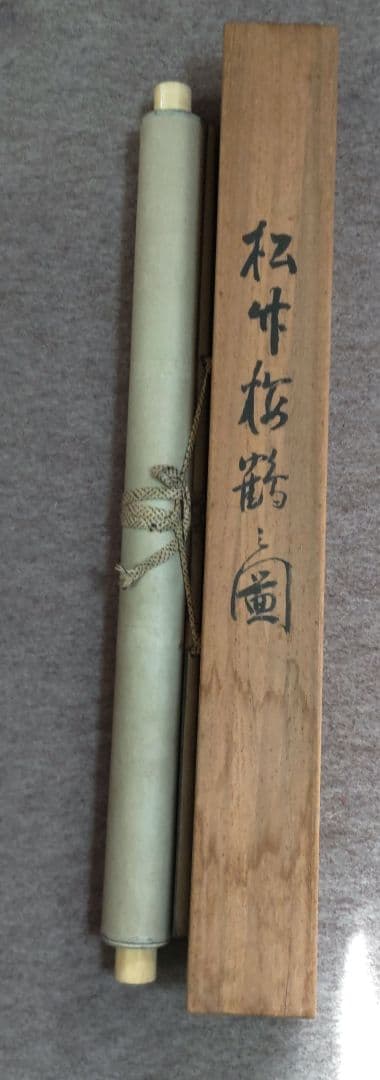 松竹梅鶴之圖